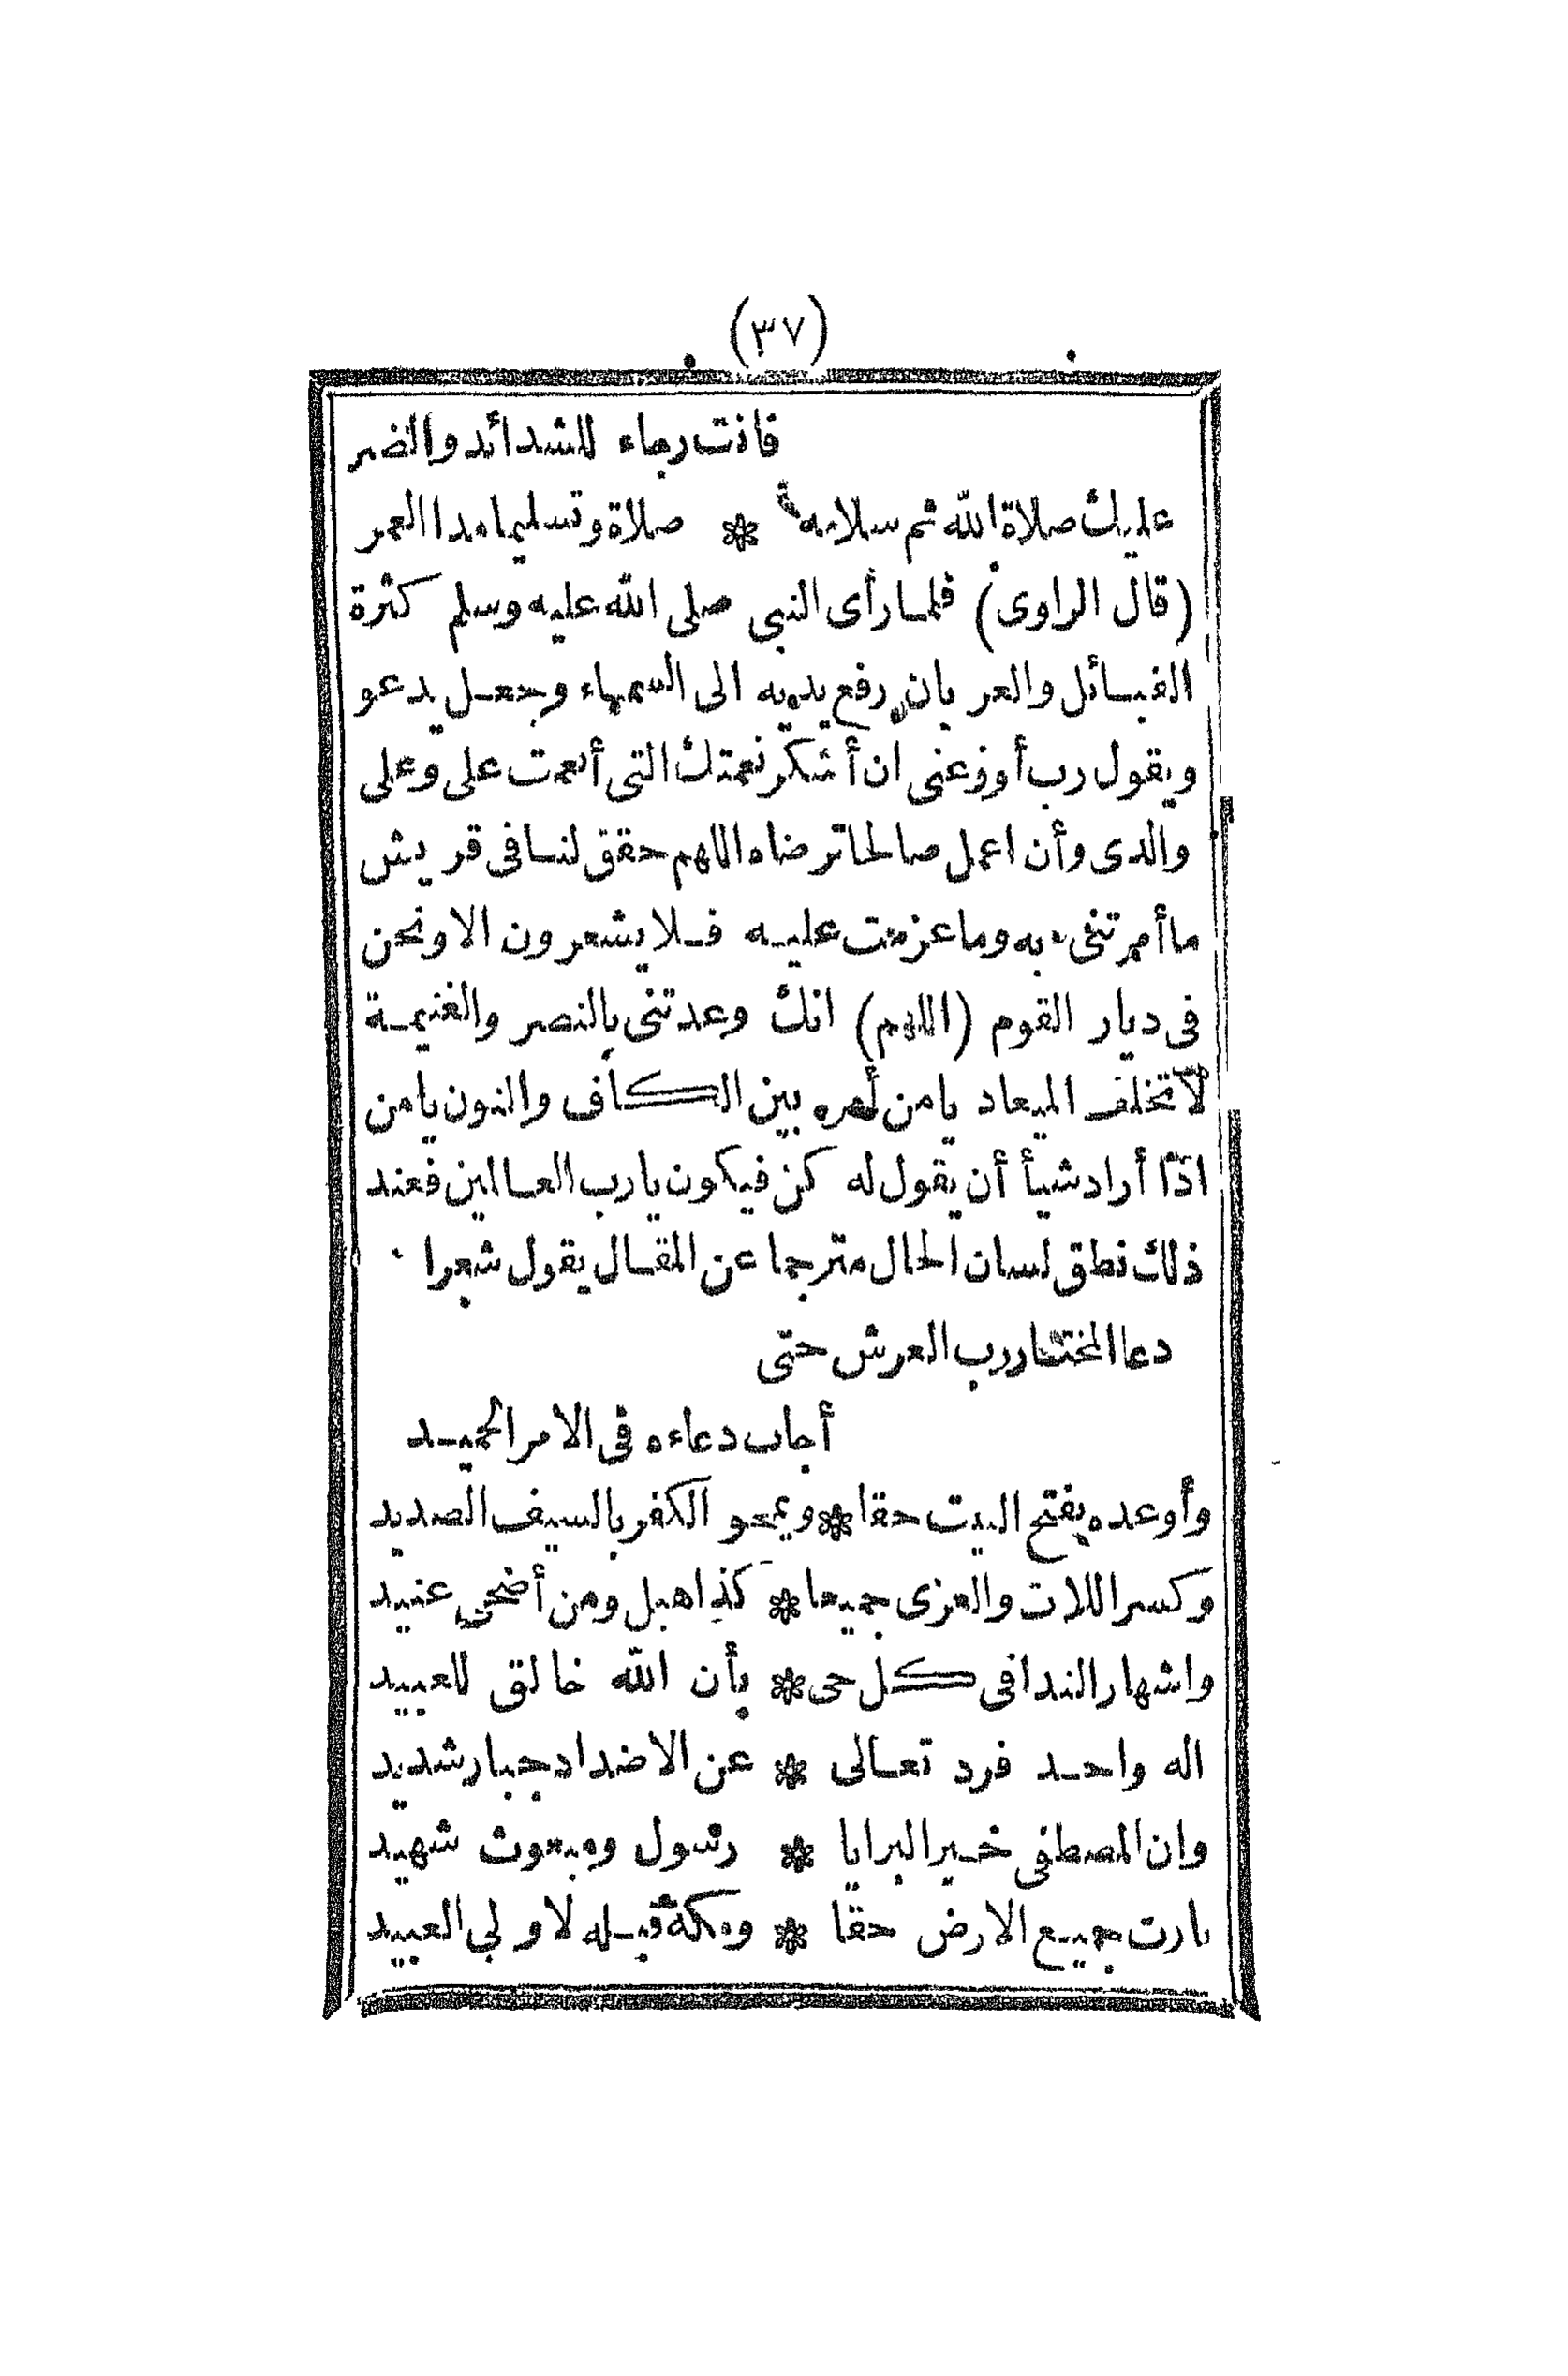 (٣٧)
فانت رجاء للشدائد والضر
عليك صلاة الله ثم سلامه * صلاة وتسليما مدا العمر
(قال الراوى) فلما رأى النبي صلى الله عليه وسلم كثرة
القبائل والعربان رفع يديه الى السماء وجعل يدعو
ويقول رب أوزعنى ان أشكر نعمتك التى أنعمت على وعلى
والدى وأن اعمل صالحا ترضاه اللهم حقق لنا فى قريش
ما أمرتنى به وما عزمت عليه فلا يشعرون الا ونحن
فى ديار القوم (اللهم) انك وعدتنى بالنصر والغنيمة
لا تخلف الميعاد يا من أمره بين الكاف والنون يا من
اذا أراد شيأ أن يقول له كن فيكون يا رب العالمين فعند
ذلك نطق لسان الحال مترجما عن المقال يقول شعرا
دعا المختار رب العرش حتى
أجاب دعاءه فى الامر الحميد
وأوعده بفتح البيت حقا * ويمحو الكفر بالسيف الصديد
وكسر اللات والعزى جميعا * كذا هبل ومن أضحى عنيد
واشهار الندا فى كل حى * بأن الله خالق للعبيد
اله واحد فرد تعالى * عن الاضداد جبار شديد
وان المصطفى خير البرايا * رسول ومبعوث شهيد
جميع الارض حقا * ومكة قبله لاولى العبيد